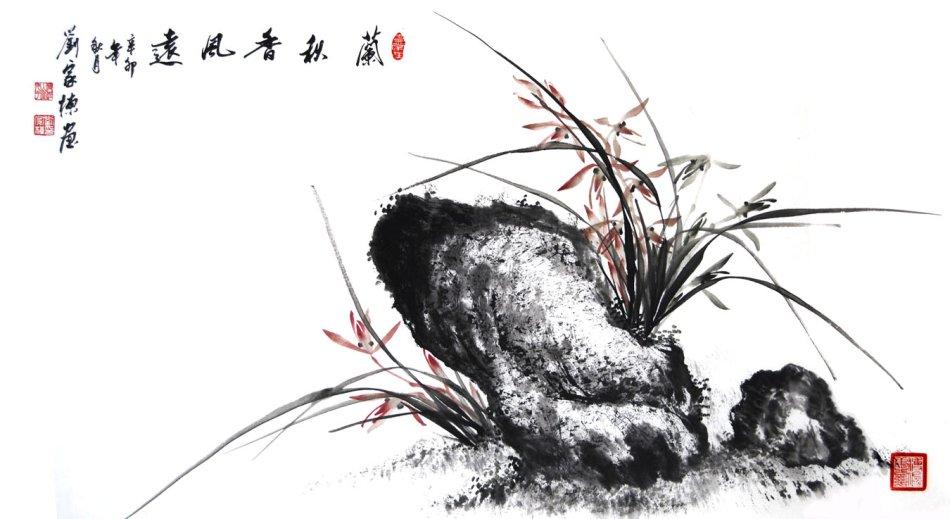 蘭秋香风遠
辛卯
年
秋月
劉家棟畫